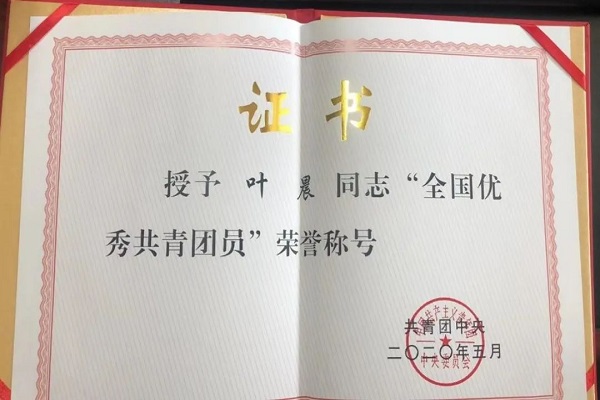 证书
授予 叶晨 同志“全国优
秀共青团员”荣誉称号
共青团中央
二〇二〇年五月
中央委员会